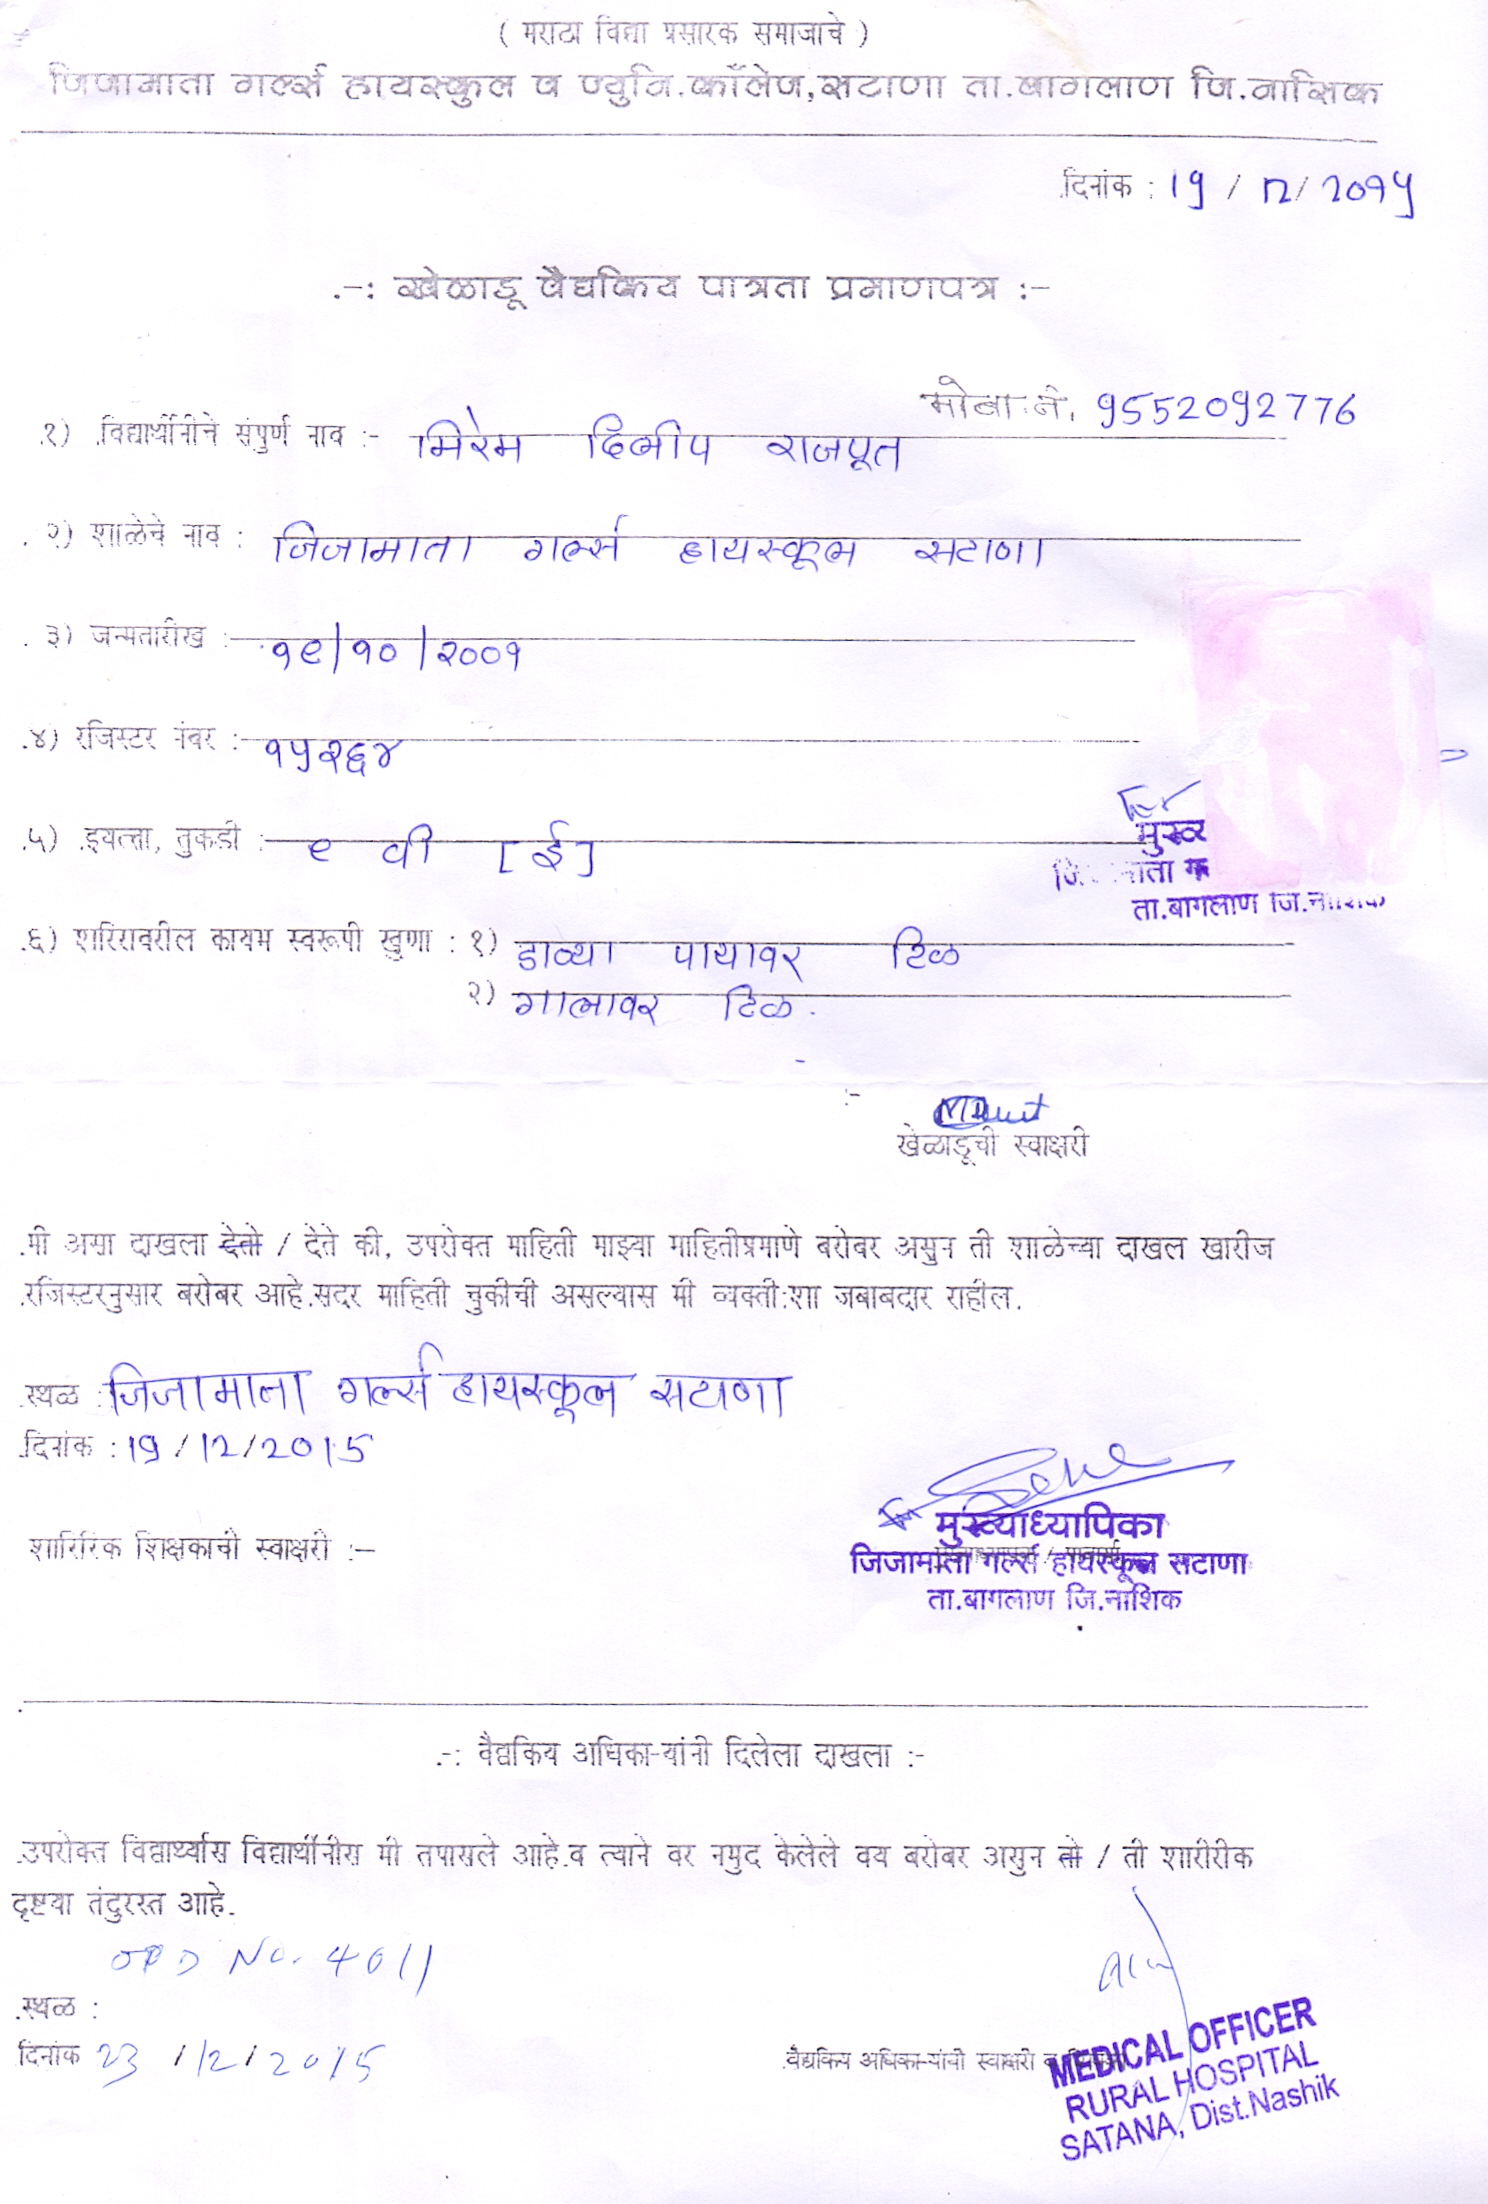 ( मराठा विद्या प्रसारक समाजाचे )
जिजामाता गर्ल्स हायस्कुल व ज्युनि.कॉलेज,सटाणा ता.बागलाण जि.नासिक
दिनांक : 19 / 12 / 20१५
-: खेळाडू वैद्यकिय पात्रता प्रमाणपत्र :-
मोबा.नं. 9552092776
१) विद्यार्थीनीचे संपुर्ण नाव :- मिरेम दिलीप राजपूत
२) शाळेचे नाव : जिजामाता गर्ल्स हायस्कूल सटाणा
३) जन्मतारीख :- १९/१०/२००१
४) रजिस्टर नंबर :- १५२६४
५) इयत्ता, तुकडी :- ९ वी [ई]
मुख्य
जि माता ग
ता.बागलाण जि.नाशिक
६) शरिरावरील कायम स्वरूपी खुणा : १) डाव्या पायावर टिळ
२) गालावर टिळ.
खेळाडूची स्वाक्षरी
मी असा दाखला देतो / देते की, उपरोक्त माहिती माझ्या माहितीप्रमाणे बरोबर असुन ती शाळेच्या दाखल खारीज
रजिस्टरनुसार बरोबर आहे.सदर माहिती चुकीची असल्यास मी व्यक्ती:शा जबाबदार राहील.
स्थळ : जिजामाता गर्ल्स हायस्कूल सटाणा
दिनांक : 19/12/2015
शारिरिक शिक्षकाची स्वाक्षरी :-
मुख्याध्यापिका
जिजामाता गर्ल्स हायस्कूल सटाणा
ता.बागलाण जि.नाशिक
-: वैद्यकिय अधिका-यांनी दिलेला दाखला :-
उपरोक्त विद्यार्थ्यास विद्यार्थीनीस मी तपासले आहे.व त्याने वर नमुद केलेले वय बरोबर असुन तो / ती शारीरीक
दृष्टया तंदुरस्त आहे.
OPD No. 4011
स्थळ :
दिनांक 23 / 12 / 2015
वैद्यकिय अधिका-यांची स्वाक्षरी व
MEDICAL OFFICER
RURAL HOSPITAL
SATANA, Dist.Nashik